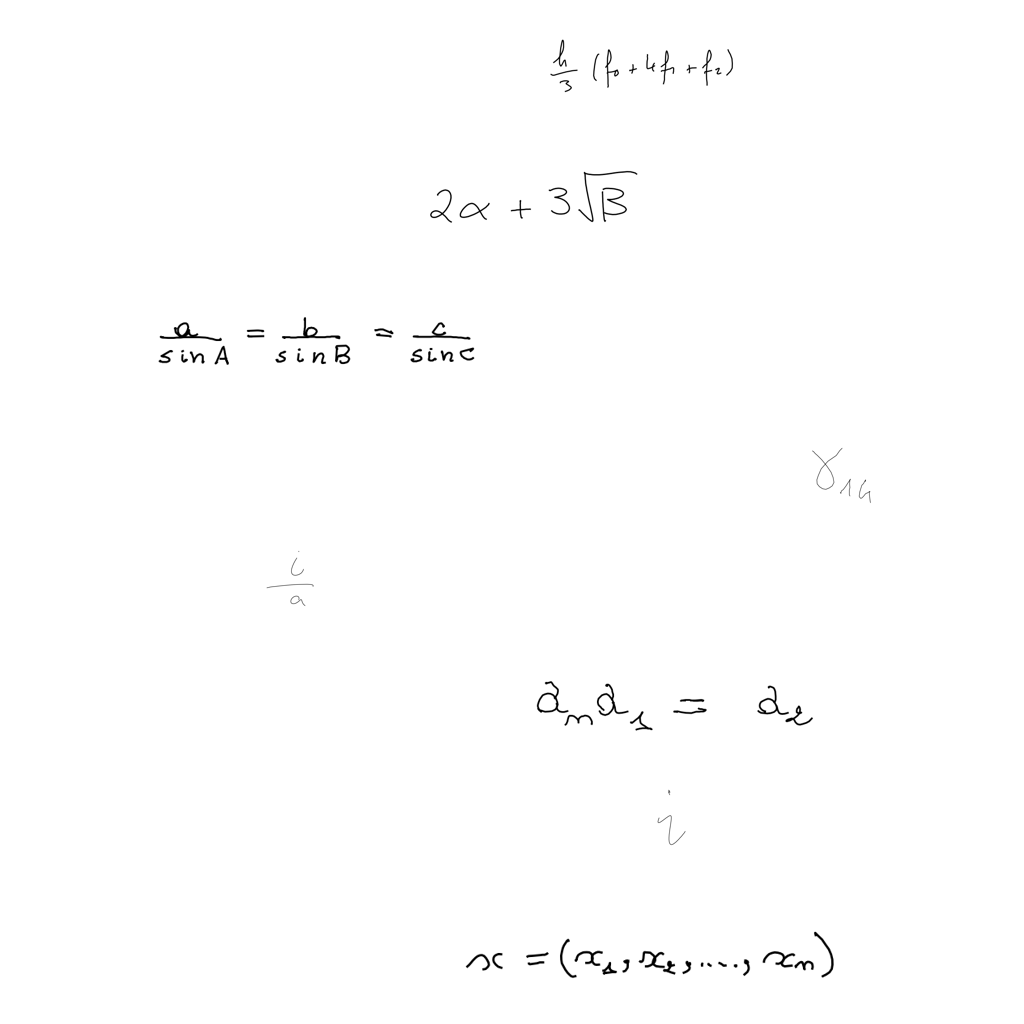 \frac{h}{3} (f_0 + 4f_1 + f_2)
2\alpha + 3\sqrt{B}
\frac{a}{\sin A} = \frac{b}{\sin B} = \frac{c}{\sin C}
\gamma_{14}
\frac{i}{a}
a_n a_1 = a_2
i
x = (x_1, x_2, ...., x_n)